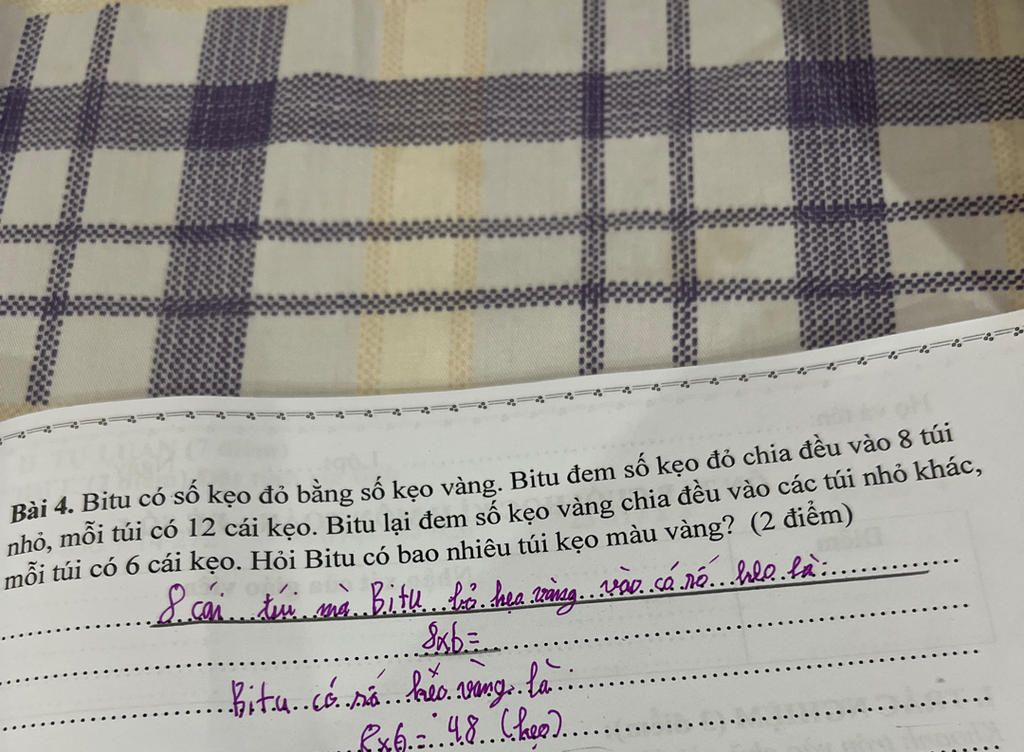 Bài 4. Bitu có số kẹo đỏ bằng số kẹo vàng. Bitu đem số kẹo đỏ chia đều vào 8 túi
nhỏ, mỗi túi có 12 cái kẹo. Bitu lại đem số kẹo vàng chia đều vào các túi nhỏ khác,
mỗi túi có 6 cái kẹo. Hỏi Bitu có bao nhiêu túi kẹo màu vàng? (2 điểm)
8 cái túi mà Bitu bỏ kẹo vàng vào có số kẹo là:
8x6=
Bitu có số kẹo vàng là
8x6= 48 (kẹo)